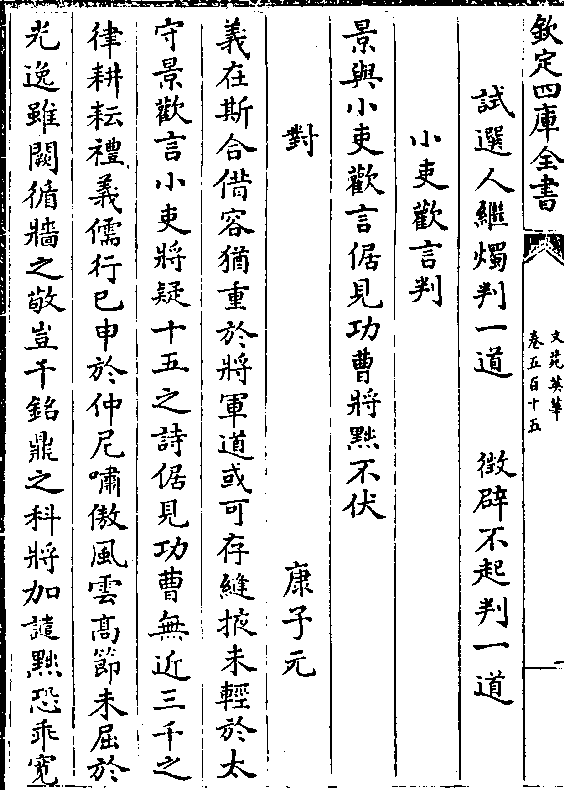 欽定四庫全書
文苑英華
卷五百十五
試選人繼燭判一道　徴辟不起判一道
小吏歡言判
景與小吏歡言倨見功曹將㸃不伏
對　康子元
義在斯合借容猶重於將軍道或可存縫掖未輕於太
守景歡言小吏將疑十五之詩倨見功曹無近三千之
律耕耘禮義儒行已申於仲尼嘯傲風雲髙節未屈於
光逸雖闕循牆之敬豈干銘鼎之科將加譴㸃恐乖寛